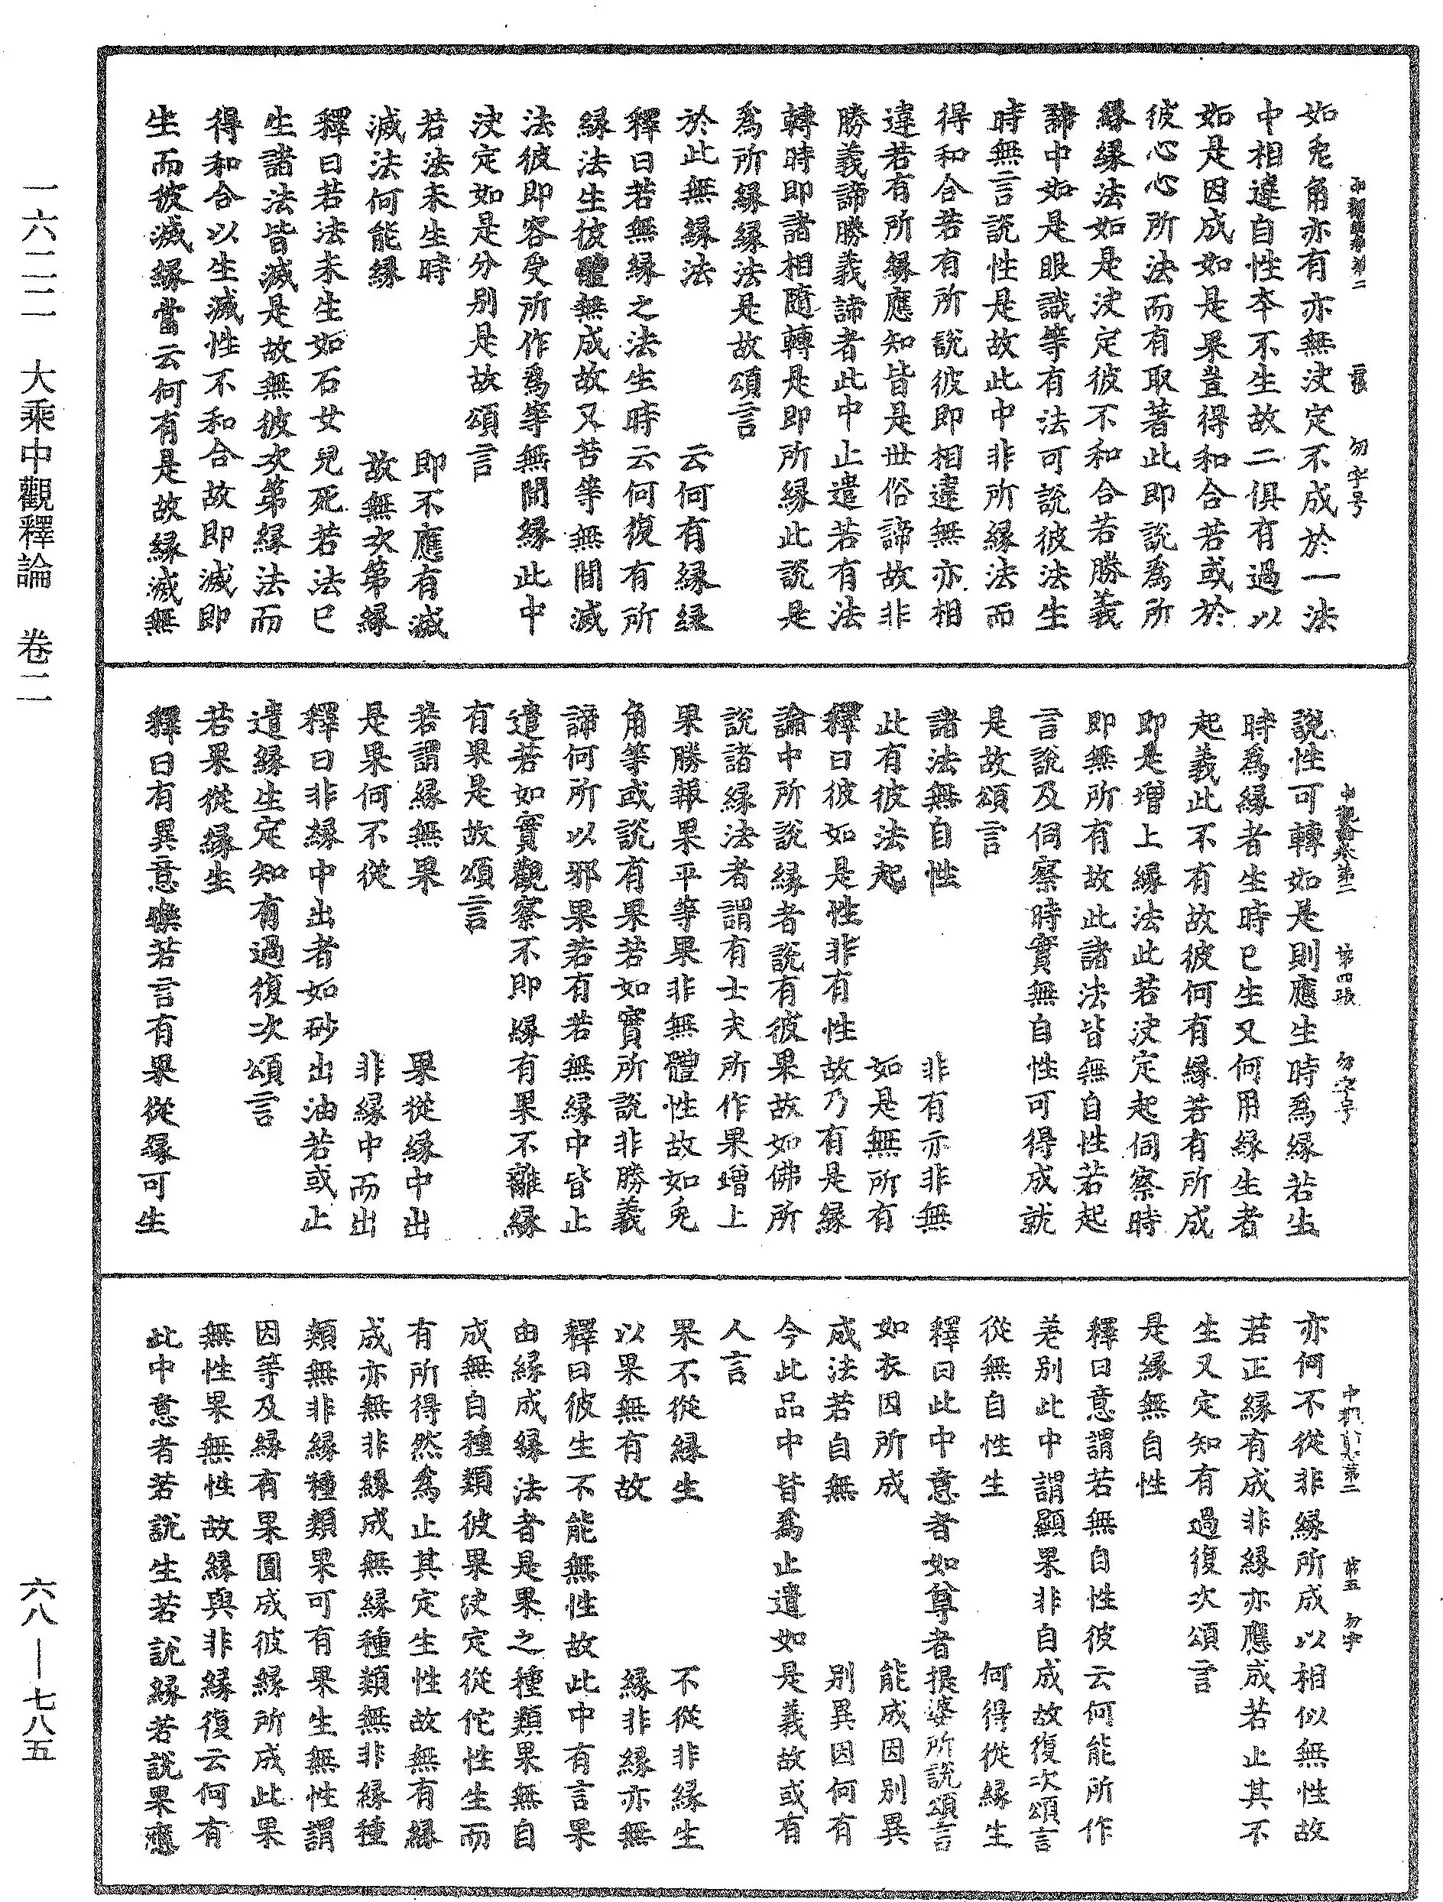 一六二二　大乘中觀釋論　卷二
六八—七八五
如兔角亦有亦無決定不成於一法
中相違自性本不生故二俱有過以
如是因成如是果豈得和合若或於
彼心心所法而有取著此即說爲所
緣緣法如是決定彼不和合若勝義
諦中如是眼識等有法可說彼法生
時無言說性是故此中非所緣法而
得和合若有所說彼即相違無亦相
違若有所緣應知皆是世俗諦故非
勝義諦勝義諦者此中止遣若有法
轉時即諸相隨轉是即所緣此說是
爲所緣緣法是故頌言
於此無緣法　云何有緣緣
釋曰若無緣之法生時云何復有所
緣法生彼體無成故又若等無間滅
法彼即容受所作爲等無間緣此中
決定如是分別是故頌言
若法未生時　即不應有滅
滅法何能緣　故無次第緣
釋曰若法未生如石女兒死若法已
生諸法皆滅是故無彼次第緣法而
得和合以生滅性不和合故即滅即
生而彼滅緣當云何有是故緣滅無
中觀論卷第二　第四張　勿字号
說性可轉如是則應生時爲緣若生
時爲緣者生時已生又何用緣生者
起義此不有故彼何有緣若有所成
即是增上緣法此若決定起伺察時
即無所有故此諸法皆無自性若起
言說及伺察時實無自性可得成就
是故頌言
諸法無自性　非有亦非無
此有彼法起　如是無所有
釋曰彼如是性非有性故乃有是緣
論中所說緣者說有彼果故如佛所
說諸緣法者謂有士夫所作果增上
果勝報果平等果非無體性故如兔
角等或說有果若如實所說非勝義
諦何所以邪果若有若無緣中皆止
遣若如實觀察不即緣有果不離緣
有果是故頌言
若謂緣無果　果從緣中出
是果何不從　非緣中而出
釋曰非緣中出者如砂出油若或止
遣緣生定知有過復次頌言
若果從緣生
釋曰有異意樂若言有果從緣可生
亦何不從非緣所成以相似無性故
若正緣有成非緣亦應成若止其不
生又定知有過復次頌言
是緣無自性
釋曰意謂若無自性彼云何能所作
差別此中謂顯果非自成故復次頌言
從無自性生　何得從緣生
釋曰此中意者如尊者提婆所說頌言
如衣因所成　能成因別異
成法若自無　別異因何有
今此品中皆爲止遣如是義故或有
人言
果不從緣生　不從非緣生
以果無有故　緣非緣亦無
釋曰彼生不能無性故此中有言果
由緣成緣法者是果之種類果無自
成無自種類彼果決定從佗性生而
有所得然爲止其定生性故無有緣
成亦無非緣成無緣種類無非緣種
類無非緣種類果可有果生無性謂
因等及緣有果圓成彼緣所成此果
無性果無性故緣與非緣復云何有
此中意者若說生若說緣若說果應